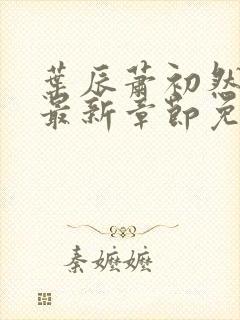 葉辰蕭初然
最新章節免
秦嬤嬤